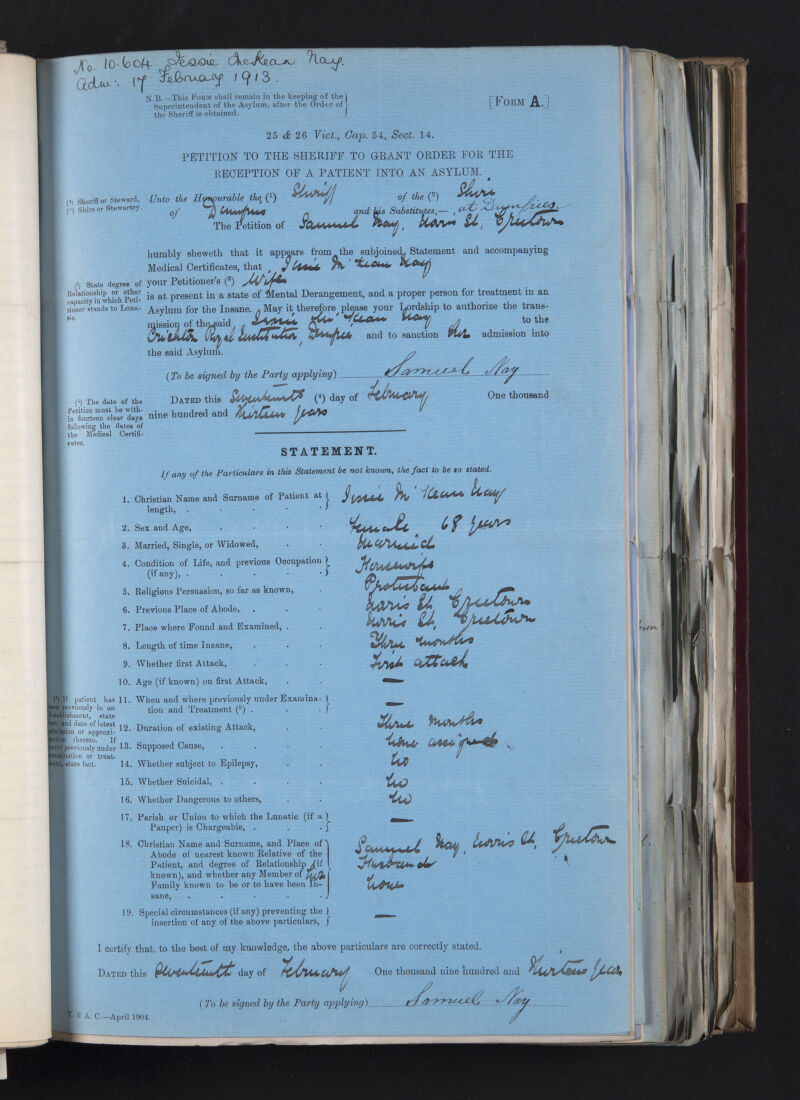 No. 10.604 Jessie McKean Nay.
Adm: 17 February 1913.
N.B.—This Form shall remain in the keeping of the
Superintendent of the Asylum, after the Order of
the Sheriff is obtained.
[Form A.]
25 & 26 Vict., Cap. 54, Sect. 14.
PETITION TO THE SHERIFF TO GRANT ORDER FOR THE
RECEPTION OF A PATIENT INTO AN ASYLUM.
(¹) Sheriff or Steward.
(²) Shire or Stewartry.
Unto the Honourable the (¹) Sheriff of the (²) Shire
of Dumfries and his Substitutes,— at Dumfries
The Petition of Samuel Nay, St, Creetown
humbly sheweth that it appears from the subjoined Statement and accompanying
Medical Certificates, that Jessie McKean Nay
(³) State degree of
Relationship or other
capacity in which Peti-
tioner stands to Luna-
tic.
your Petitioner's (³) Wife
is at present in a state of Mental Derangement, and a proper person for treatment in an
Asylum for the Insane. May it therefore please your Lordship to authorize the trans-
mission of the said Jessie McKean Nay to the
Crichton Royal Institution, Dumfries and to sanction her admission into
the said Asylum.
(To be signed by the Party applying) Samuel Nay
(⁴) The date of the
Petition must be with-
in fourteen clear days
following the dates of
the Medical Certifi-
cates.
Dated this Seventeenth (⁴) day of February One thousand
nine hundred and thirteen years
STATEMENT.
If any of the Particulars in this Statement be not known, the fact to be so stated.
1. Christian Name and Surname of Patient at
length, . . . . . Jessie McKean Nay
2. Sex and Age, . . . . Female 68 years
3. Married, Single, or Widowed, . . Married
4. Condition of Life, and previous Occupation
(if any), . . . . . Housewife
5. Religious Persuasion, so far as known, . Protestant
6. Previous Place of Abode, . . . St, Creetown
7. Place where Found and Examined, . . St, Creetown
8. Length of time Insane, . . . Three months
9. Whether first Attack, . . . First attack
10. Age (if known) on first Attack, . . —
(⁵) If patient has
been previously in an
Establishment, state
fact, and date of latest
admission or approxi-
mation thereto. If
never previously under
examination or treat-
ment, state fact.
11. When and where previously under Examina-
tion and Treatment (⁵) . . . —
12. Duration of existing Attack, . . Three months
13. Supposed Cause, . . . . None assigned
14. Whether subject to Epilepsy, . . No
15. Whether Suicidal, . . . . No
16. Whether Dangerous to others, . . No
17. Parish or Union to which the Lunatic (if a
Pauper) is Chargeable, . . . —
18. Christian Name and Surname, and Place of
Abode of nearest known Relative of the
Patient, and degree of Relationship (if
known), and whether any Member of her
Family known to be or to have been In-
sane, . . . . . .
Samuel Nay, St, Creetown
Husband
None
19. Special circumstances (if any) preventing the
insertion of any of the above particulars, —
I certify that, to the best of my knowledge, the above particulars are correctly stated.
Dated this Seventeenth day of February One thousand nine hundred and thirteen years
(To be signed by the Party applying) Samuel Nay
T. & A. C.—April 1904.